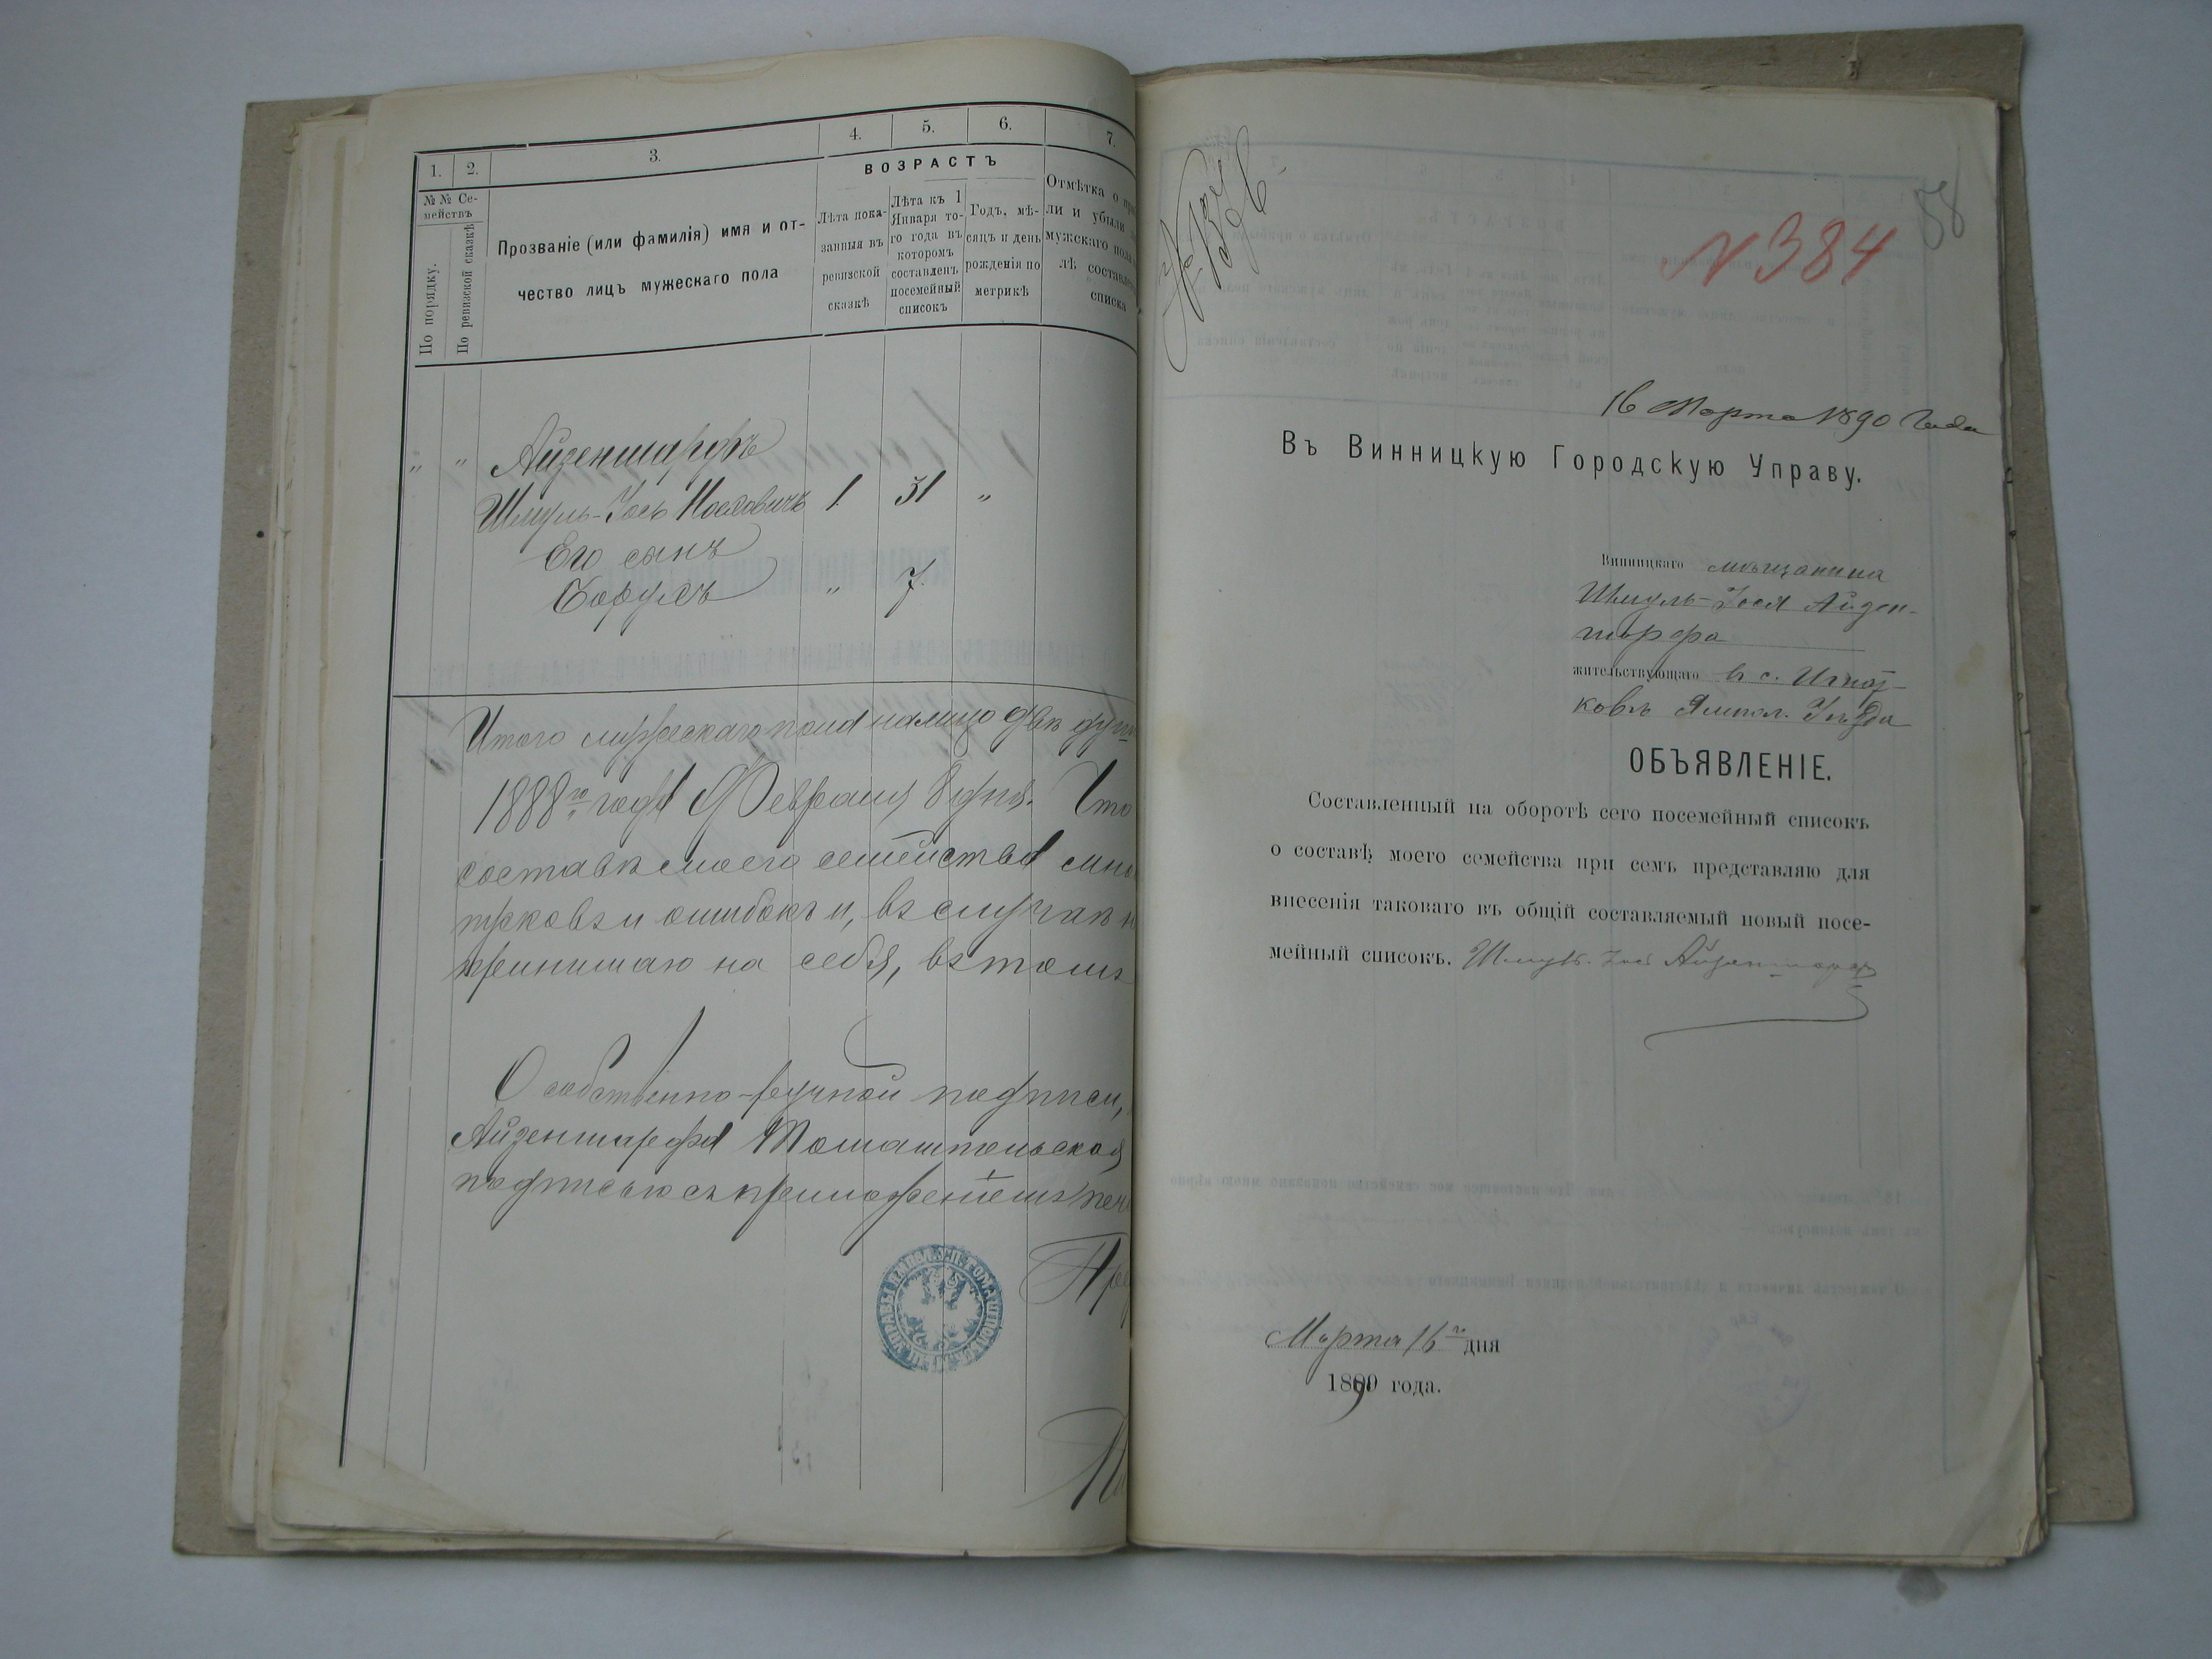 1. 2. 3. 4. 5. 6. 7.
ВОЗРАСТЪ
№№ Се-
мействъ
По порядку.
По ревизской сказкѣ
Прозваніе (или фамилія) имя и от-
чество лицъ мужескаго пола
Лѣта пока-
занныя въ
ревизской
сказкѣ
Лѣта къ 1
Января то-
го года въ
которомъ
составленъ
посемейный
списокъ
Годъ, мѣ-
сяцъ и день
рожденія по
метрикѣ
Отмѣтка о
ли и убыли
мужскаго пола
лѣ составле
списка
„ „ Айзеншарфъ
Шмуль-Іось Іосіовичъ 1 31 „
Его сынъ
Борухъ „ 7
Итого мужескаго пола налицо двѣ душ
1888го года Февраля 8 дня. Что
составѣ моего семейства
и ошибокъ и, въ случаѣ
принимаю на себя, въ томъ
О собственно-ручной подписи,
Айзеншарфа Томашпольская
подписью съ приложеніемъ печ
№ 384
58
16 Марта 1890 Года
Въ Винницкую Городскую Управу.
Винницкаго мѣщанина
Шмуль-Іося Айзен-
шарфа
жительствующаго в с.
Ямпол. Уѣзда
ОБЪЯВЛЕНІЕ.
Составленный на оборотѣ сего посемейный списокъ
о составѣ моего семейства при семъ представляю для
внесенія таковаго въ общій составляемый новый посе-
мейный списокъ. Шмуль-Іось Айзеншарф
Марта 16го дня
1890 года.